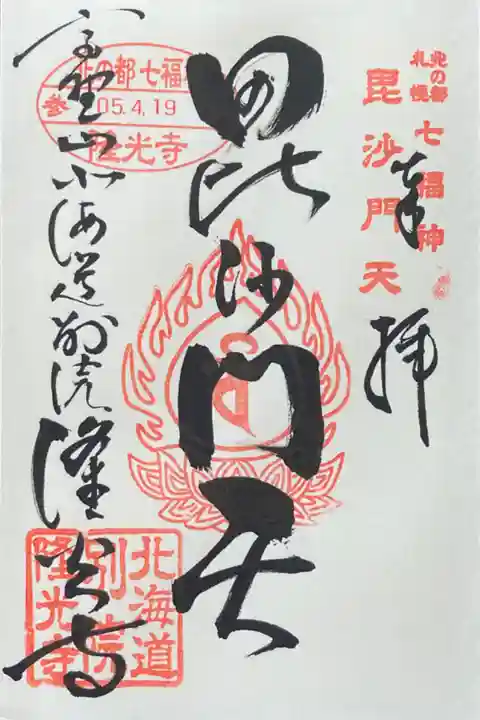 北の都
札幌
七福神
毘沙門天
奉拝
毘沙門天
北の都七福
参 05.4.19
隆光寺
北海道別院
隆光寺
北海道
別院
隆光寺